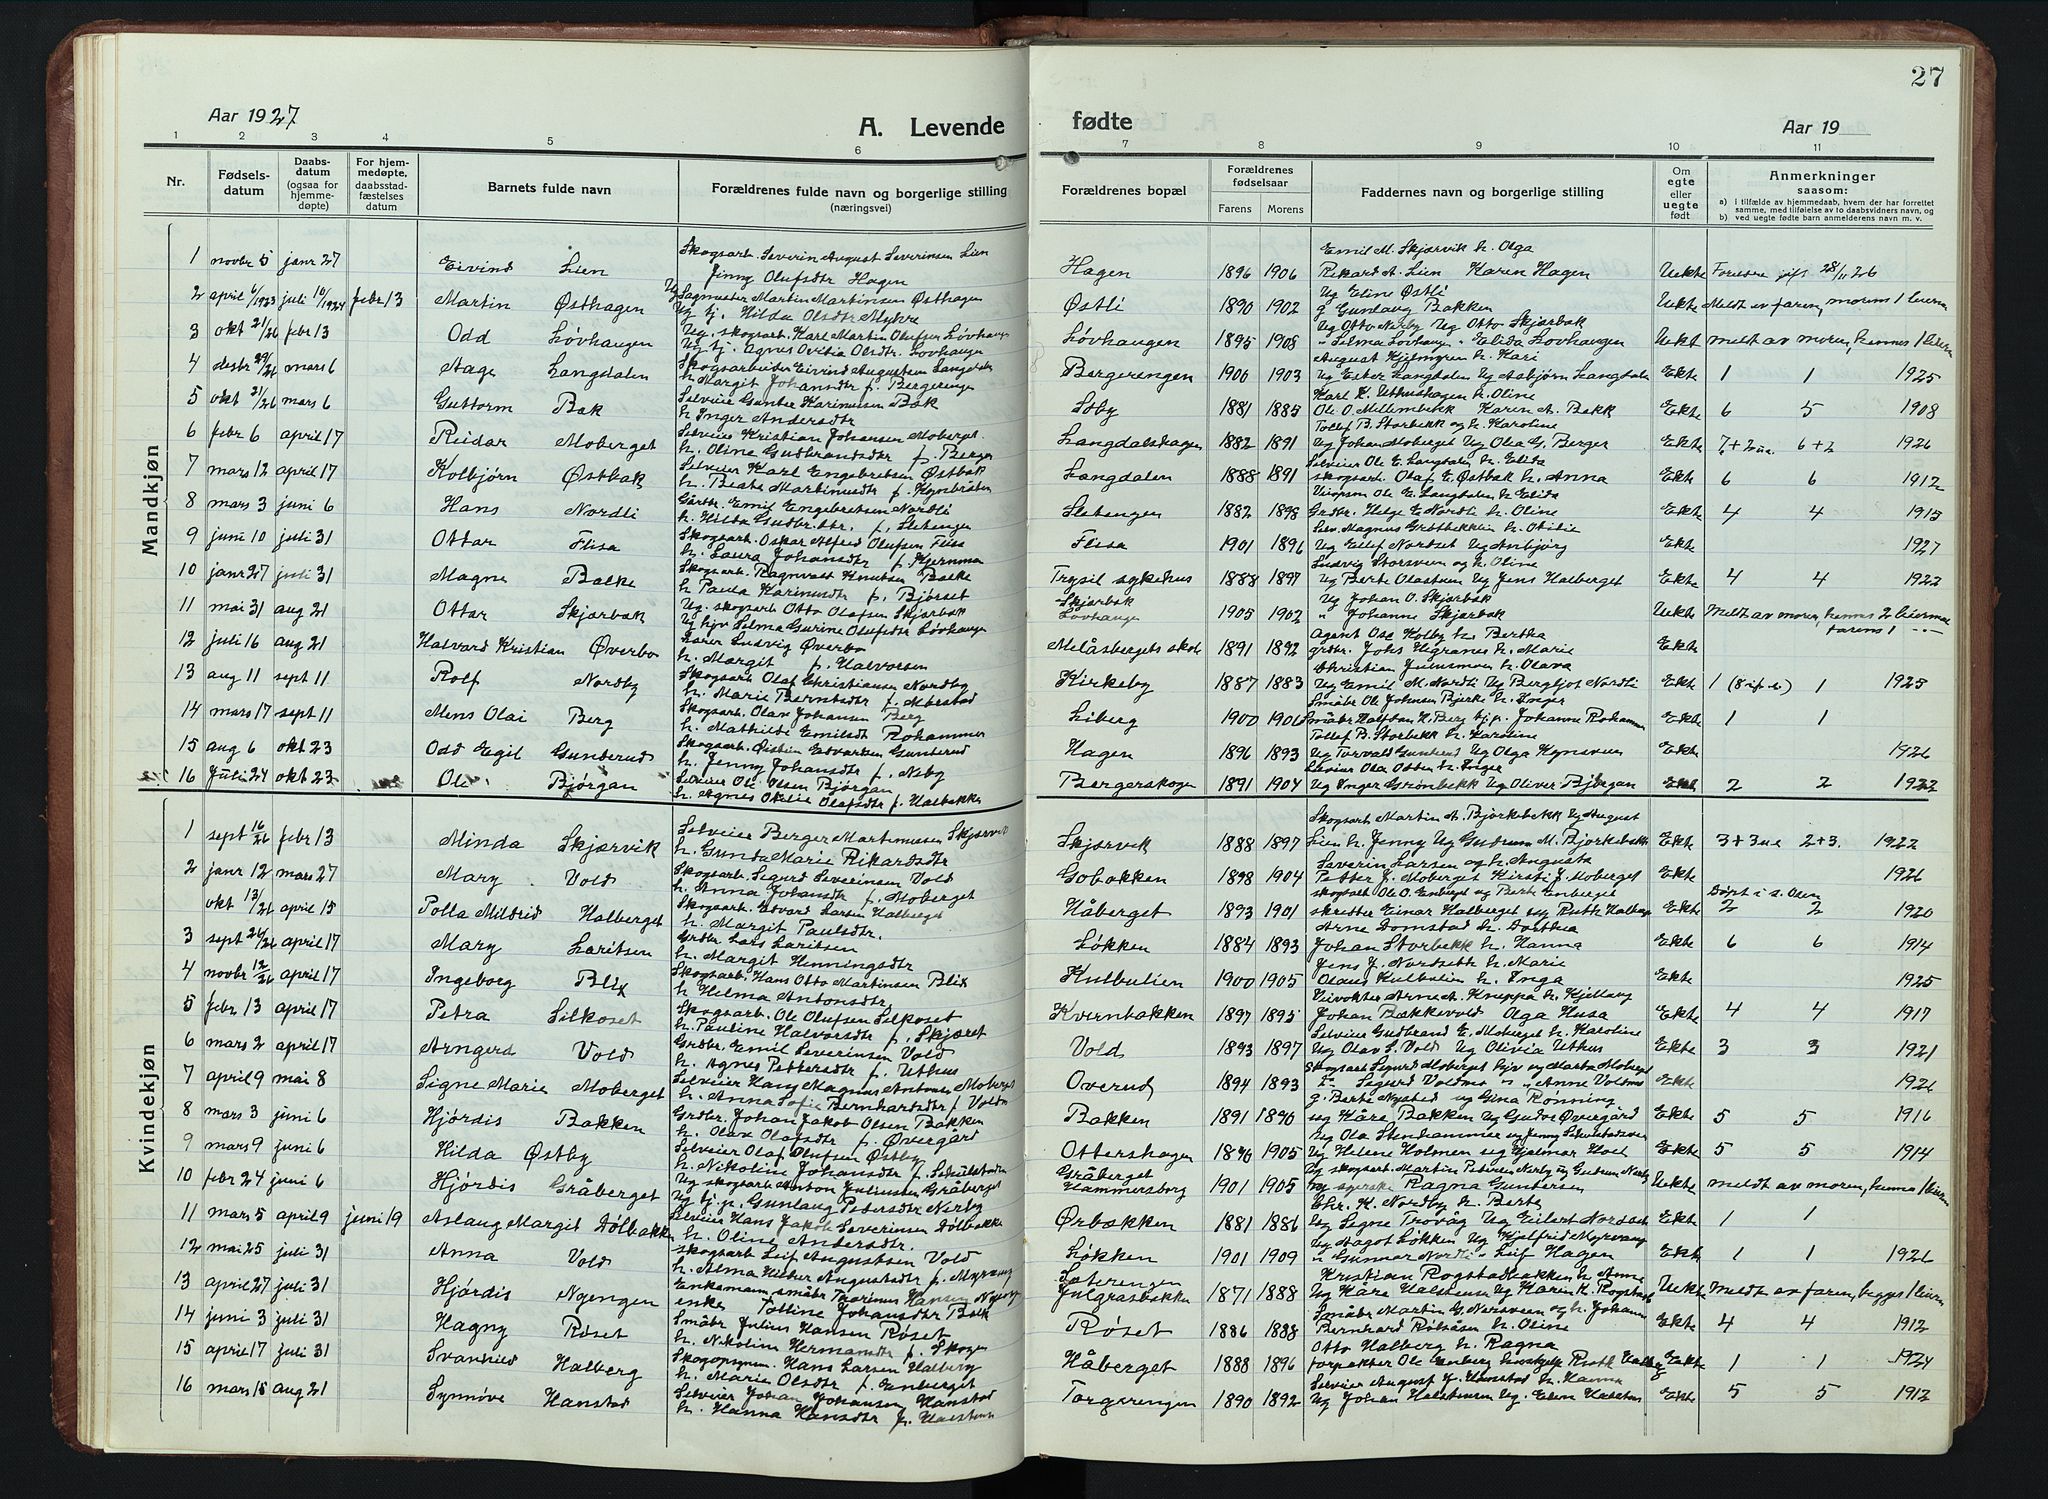 27
Aar 1927
A. Levende fødte
Aar 19
1 2 3 4 5 6 7 8 9 10 11
Nr.
Fødsels-datum
Daabs-datum (ogsaa for hjemme-døpte)
For hjem-medøpte, daabsstad-fæstelses datum
Barnets fulde navn
Forældrenes fulde navn og borgerlige stilling (næringsvei)
Forældrenes bopæl
Forældrenes fødselsaar
Farens Morens
Faddernes navn og borgerlige stilling
Om egte eller uegte født
Anmerkninger saasom:
a) I tilfælde av hjemmedaab, hvem der har forrettet samme, med tilføielse av to daabsvidners navn, og
b) ved uegte født barn anmelderens navn m. v.
Mandkjøn
1 novbr 5 janr 27 Eivind Lien Skogsarb. Severin August Severinsen Lien
Jenny Olufsdtr Hagen Hagen 1896 1906 Emil M. Skjærvik h. Olga
Rikard A. Lien Karen Hagen Uekte Foreldre gift 28/11 26
2 april 6/1923 juli 10/1924 febr 13 Martin Østhagen Sagmester Martin Martinsen Østhagen
Ug tj. Hilda Olsdtr Myhre Østli 1890 1902 Ug Eline Østli
g Gunlaug Bakken Uekte Meldt av faren, morens 1 leierm
3 okt 21/26 febr 13 Odd Løvhaugen Ug. skogsarb. Karl Martin Olufsen Løvhaugen
Ug tj. Agnes Ovidia Olsdtr. Løvhaugen Løvhaugen 1895 1908 Ug Otto Nerby Ug Otto Skjærbak
" Selma Løvhaugen " Elida Løvhaugen Uekt meldt av moren, hennes 1 leierm
4 desbr 29/26 mars 6 Aage Langdalen Skogsarbeider Eivind Augustsen Langdalen
h. Margit Johansdtr f. Bergerengen Bergerengen 1900 1903 August Kjelmyren h. Kari
Ug Ester Langdalen Ug Asbjørn Langdalen Ekte 1 1 1925
5 okt 31/26 mars 6 Guttorm Bak Selveier Gunder Karinusen Bak
h. Inger Andersdtr Løby 1881 1885 Karl K. Uthushagen h. Oline
Ole O. Mellembekk Karen A. Bakk Ekte 6 5 1908
6 febr 6 april 17 Reidar Moberget Selveier Kristian Johansen Moberget.
h. Oline Gudbrandsdtr f. Berger Langdalshagen 1882 1891 Tollef B. Storbekk og h. Karoline
Ug Johan Moberget Ug Olea G. Berger Ekte 7+2ue. 6+2 1926
7 mars 12 april 17 Kolbjørn Østbak Selveier Karl Engebretsen Østbak
h. Beate Martinusdtr f. Kynbråten Langdalen 1888 1891 Selveier Ole E. Langdalen h. Elida
skogsarb. Olaf E. Østbak h. Anna Ekte 6 6 1912
8 mars 3 juni 6 Hans Nordli Gårdbr. Emil Engebretsen Nordli
h. Hilda Gudbr.dtr. f. Sletengen Sletengen 1882 1898 Ole E. Langdalen h. Elida
Grdbr. Helge E. Nordli h. Oline Ekte 4 4 1915
9 juni 10 juli 31 Ottar Flisa Skogsarb. Oskar Alfred Olufsen Flisa
h. Laura Johansdtr f. Kjernmoa Flisa 1901 1896 Selv. Magnus Grøtbekklien h. Otilie
Ug Eilef Nordset Ug Anbjørg Ekte 1927
10 janr 27 juli 31 Magne Balke Skogsarb. Ragnvald Knutsen Balke
h Paula Karinusdtr f. Bjørset Trysil sykehus 1888 1897 Ludvig Storsveen og h. Oline
Ug Berte Olastuen Ug Jens Halberget Ekte 4 4 1922
11 mai 31 aug 21 Ottar Skjærbak Ug. skogsarb Otto Olafsen Skjærbak
Ug hjv Selma Gurine Olufsdtr Løvhaugen Skjærbak
Løvhaugen 1905 1902 Ug Johan O. Skjærbak
" Johanne Skjærbak Uekte Meldt av moren, hennes 2 leiermaal
farens 1
12 juli 16 aug 21 Halvard Kristian Øverbø Lærer Ludvig Øverbø
h. Margit f. Halvorsen Melåsbergets skole 1891 1892 Agent Ose Kolby h. Bertha
grdbr. Johs Ugranes h. Marie Ekte
13 aug 11 sept 11 Rolf Nordby Skogsarb Olaf Christiansen Nordby
h. Marie Berntsdtr f. Mørstad Kirkeby 1887 1883 Christian Juensmoen h. Olava
Ug Emil M. Nordli Ug Bergljot Nordli Ekte 1 1 1925
14 mars 17 sept 11 Mens Olai Berg Skogsarb. Olav Johansen Berg
h. Mathilde Emilsdtr Rohammer Liberg 1900 1906 Småbr Ole Johnsen Bjerke h. Inger
Småbr Halfdan H. Berg hj.p. Johanne Rohammer Ekte 1 1
15 aug 6 okt 23 Odd Egil Gunderud Skogsarb. Øistein Edvartsen Gunderud
h. Jenny Johansdtr f. Neby Hagen 1896 1893 Tollef B. Storbekk h. Karoline
Ug Torvald Gunderud Ug Olga Kynsveen Ekte 1926
16 Juli 24 okt 23 Ole Bjørgan Selveier Ole Olsen Bjørgan
h. Agnes Otilie Olafsdtr f. Halbakken Bergerskogen 1891 1904 Selveier Ola Otten h. Inger
Ug Inger Grønbekk Ug Oliver Bjørgan Ekte 2 2 1922
Kvindekjøn
1 sept 16/26 febr 13 Minda Skjærvik Selveier Berger Martinussen Skjærvik
h. Gunda Marie Rikardsdtr Skjærvik 1888 1897 Skogsarb Martin A. Bjørkebekk Ug August
Lien h. Jenny Ug Gudrun M. Bjørkebekk Ekte 3+3ue 2+3. 1922
2 janr 12 mars 27 Mary Vold Skogsarb. Sigurd Severinsen Vold
h. Anna Johansdtr f. Moberget Gobakken 1898 1904 Severin Larsen og h. Augusta
Petter J. Moberget Kirsti J. Moberget Ekte 1926
okt 13/26 april 15 Polla Mildrid Halberget Skogsarb. Edvard Larsen Halberget
h. Margit Paulsdtr. Håberget 1893 1901 skogsarb Ole O. Enberget og Berte Enberget
skredder Einar Halberget ug Ruth Halberget Ekte Døpt i s. Osen
2 2 1920
3 sept 26/26 april 17 Mary Laritsen Grdbr Lars Laritsen
h. Margit Henningsdtr Løkken 1884 1893 Arne Domstad h. Dorthea
Johan Storbekk h. Hanna Ekte 6 6 1914
4 novbr 12/26 april 17 Ingeborg Blix Skogsarb. Hans Otto Martinsen Blix
h Helma Antonsdtr Kulbulien 1900 1905 Jens J. Nordseth h. Marie
Olaus Kulbulien h. Inga Ekte 1925
5 febr 13 april 17 Petra Silkoset Skogsarb. Ole Olufsen Silkoset
h. Pauline Halvorsdtr f. Skjæret Kvernbakken 1897 1895 Veivokter Arne A. Knappa h. Kjellaug
Johan Bækkevold Olga Husa Ekte 4 4 1917
6 mars 2 april 17 Arngerd Vold Grdbr. Emil Severinsen Vold
h. Agnes Pettersdtr f. Uthus Vold 1893 1897 Selveier Gudbrand E. Moberget h. Karoline
Ug Olav S. Vold Ug Olivia Uthus Ekte 3 3 1921
7 april 9 mai 8 Signe Marie Moberget Selveier Hans Magnus Antonsen Moberget
h. Anna Sofie Bernhardsdtr f Voldmo Overud 1894 1893 Skogsarb Sigurd Moberget hjv og Marta Moberget
Sigurd Voldmo " Anne Voldmo Ekte 1926
8 mars 3 juni 6 Hjørdis Bakken Grdbr. Johan Jakob Olsen Bakken
h. Olava Olafsdtr f. Øvergård Bakken 1891 1890 g. Berte Nystad og Gina Rønning
ug Håre Bakken Ug Gudor Øvergård Ekte 5 5 1916
9 mars 9 juni 6 Hilda Østby Selveier Olaf Olufsen Østby
h. Nikoline Johansdtr f. Sikulstaden Ottershagen 1896 1905 Ug Ola Stenhammer og Jenny
Ug Helene Holmen ug Hjalmar Moel Ekte 5 5 1914
10 febr 24 juni 6 Hjørdis Gråberget Ug skogsarb Anton Juliussen Gråberget
Ug tj. p. Gunlaug Pedersdtr Nerby Gråberget
Hammersborg 1901 1905 Ug skogsarb. Martin Pedersen Nerby og Gudrun Nerby
Ragna Gundersen Uekte meldt av moren, hennes 1 leierm
11 mars 5 april 9 juni 19 Aslaug Margit Dølbakken Selveier Hans Jakob Severinsen Dølbakken
h. Oline Andersdtr. Ørbækken 1881 1886 Chr. K. Nordby h. Berte
Ug Signe Trovåg Ug Eilert Nordset Ekte 1 1
12 mai 25 juli 31 Anna Vold skogsarb Leif Augustsen Vold
h. Alma Heber Augustadtr f. Myrvang Løkken 1901 1909 Ug Aagot Løkken Ug Hjalfrid Myrvang
" Gunnar Nordli " Leif Hagen Ekte 1 1 1926
13 april 27 juli 31 Hjørdis Nyengen Enkemann småbr Thorinus Hansen Nyengen
enke Totline Johansdtr Bak Sæterengen
Julgrasbakken 1871 1888 Kristian Rogstadbakken h. Anne
Ug Håre Halsteen Ug Karen K. Rogstadb Uekte Meldt av faren, begges 1 leierm
14 juni 3 juli 31 Hagny Røset Småbr Julius Hansen Røset
h. Nikoline Hermansdtr f. Skogen Røset 1886 1888 Småbr Martin G. Nersveen og h. Johanne
Bernhard Rølsåsen h. Oline Ekte 4 4 1912
15 april 17 juli 31 Svanhild Halberg Skogopsynsm. Hans Larsen Halberg
h. Marie Olsdtr f. Enberget Håberget 1888 1896 Otto Halberg h. Ragna
forpakter Ole Enberg Ruth Halberg Ekte 1 1 1924
16 mars 15 aug 21 Synnøve Hanstad Selveier Johan Johansen Hanstad
h. Hanna Hansdtr f. Halsteen Torgerengen 1890 1892 Selveier August J. Hanstad h. Hanna
Ug Johan Halsteen Ug. Elen Halsteen Ekte 5 5 1912